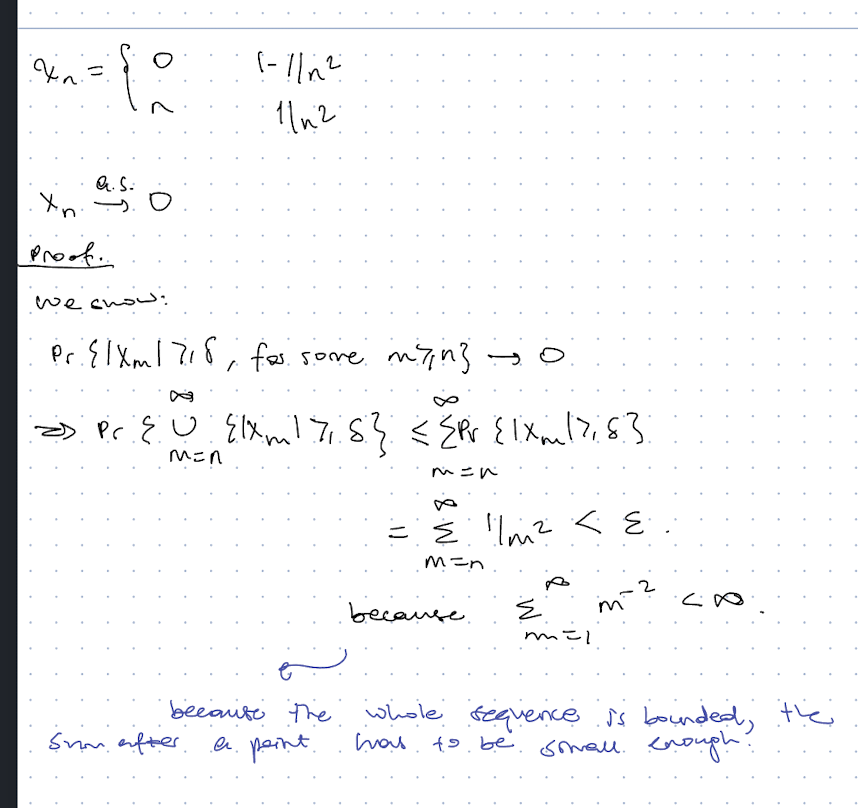 Xn = { 0 1-1/n²
n 1/n²
Xn a.s.→ 0
Proof.
we know:
Pr {|Xm| ≥ δ, for some m ≥ n} → 0
⇒ Pr { ∞∪m=n {|Xm| ≥ δ} ≤ ∞Σm=n Pr {|Xm| ≥ δ}
= ∞Σm=n 1/m² < ε.
because ∞Σm=1 m⁻² < ∞.
because the whole sequence is bounded, the
sum after a point has to be small enough.